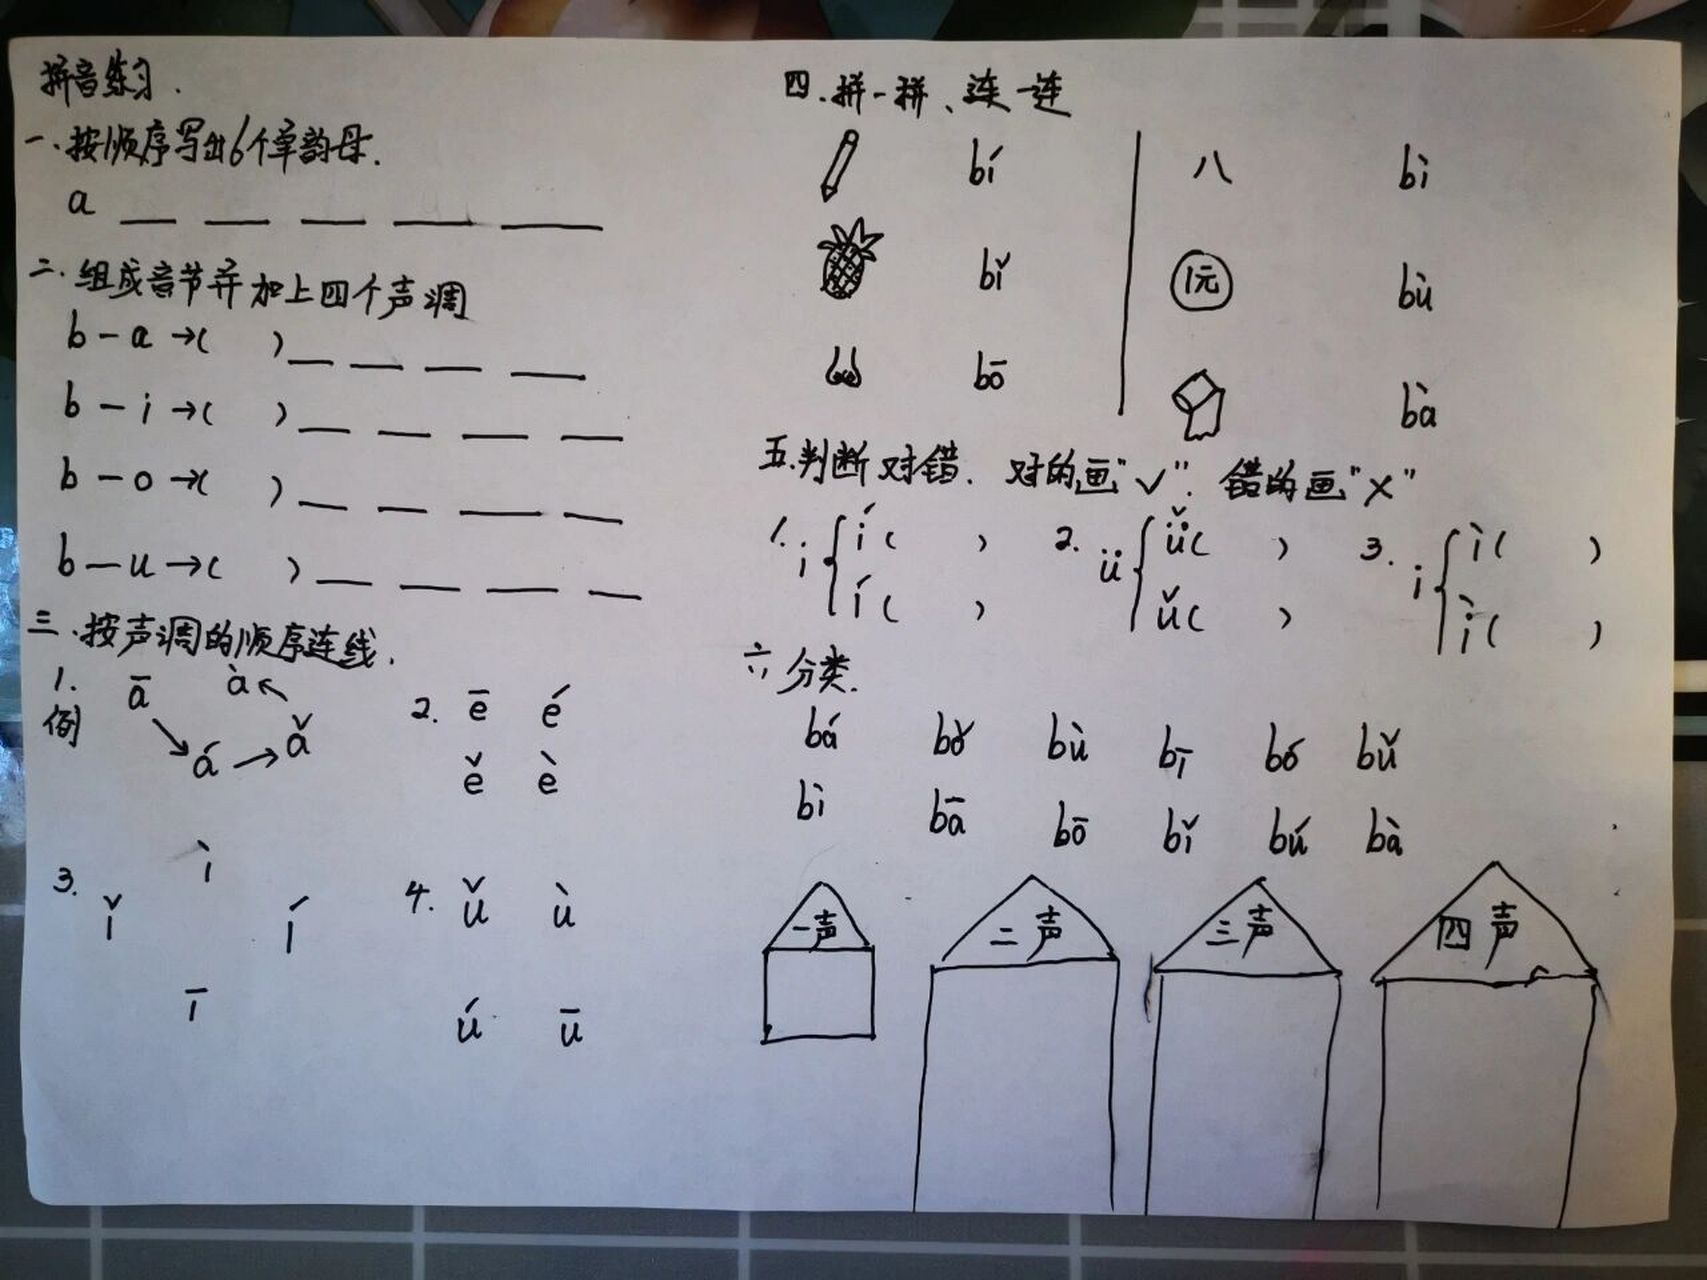 拼音练习.
一.按顺序写出6个单韵母.
a __ __ __ __ __
二.组成音节并加上四个声调
b - a →(    )__ __ __ __
b - i →(    )__ __ __ __
b - o →(    )__ __ __ __
b - u →(    )__ __ __ __
三.按声调的顺序连线.
1. 例 ā à
á ǎ
2. ē é
ě è
3. ì
ǐ í
ī
4. ǔ ù
ú ū
四.拼一拼、连一连
bí
bǐ
bō
八 bì
1元 bù
bà
五.判断对错.对的画"√".错的画"×"
1. i { í (    )
í (    )
2. ü { ǚ (    )
ǔ (    )
3. i { ì (    )
ì (    )
六.分类.
bá bǒ bù bī bó bǔ
bì bā bō bǐ bú bà
一声 二声 三声 四声